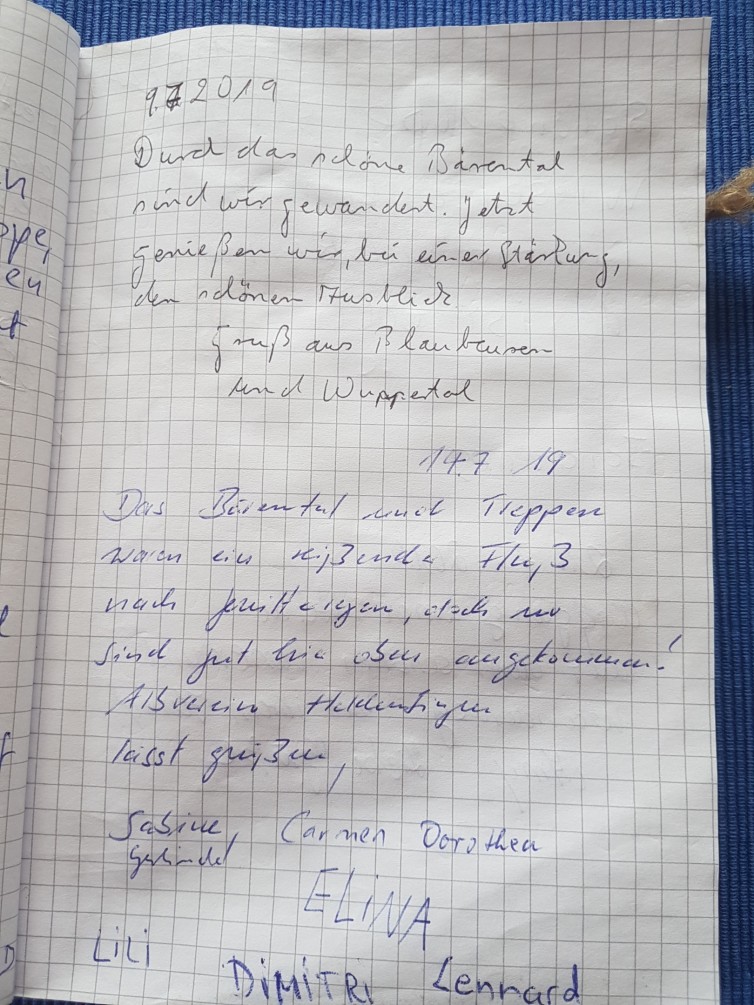 9.7 2019
Durch das schöne Bärental
sind wir gewandert. Jetzt
genießen wir, bei einer Stärkung,
den schönen Ausblick
Gruß aus Blaubeuren
und Wuppertal
14.7 19
Das Bärental und Treppen
waren ein reißender Fluß
nach Gewitterregen, doch wir
sind gut hier oben angekommen!
Albverein
lässt grüßen,
Sabine, Carmen Dorothea
ELiNA
LiLi DiMiTRi Lennard